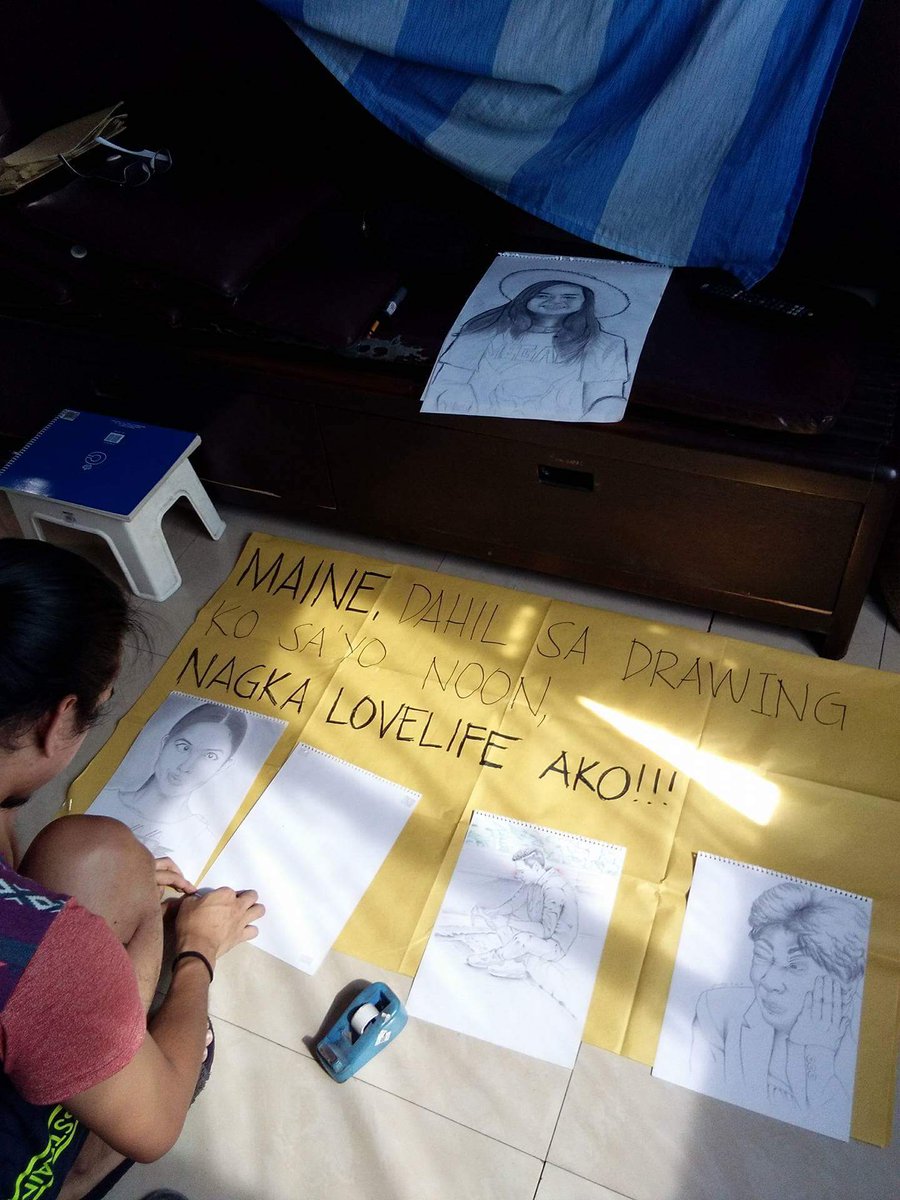 MAINE, DAHIL SA DRAWING
KO SA'YO NOON,
NAGKA LOVELIFE AKO!!!